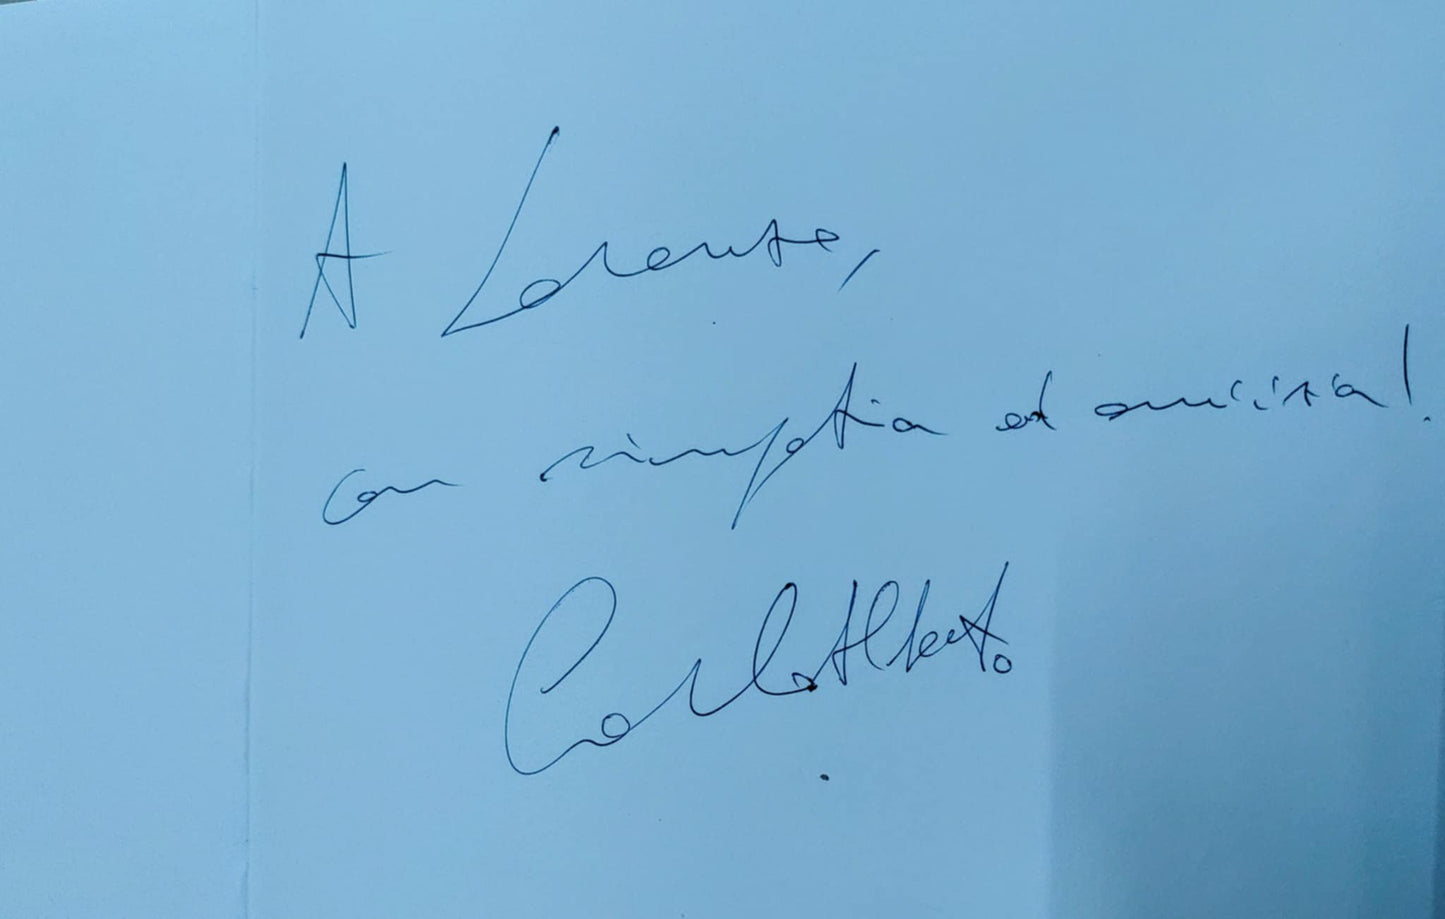 A Lorenzo,
con simpatia ed amicizia!
Carlo Alberto